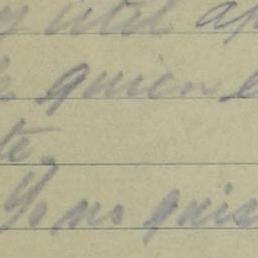 util
quien
te.
Yo no quis